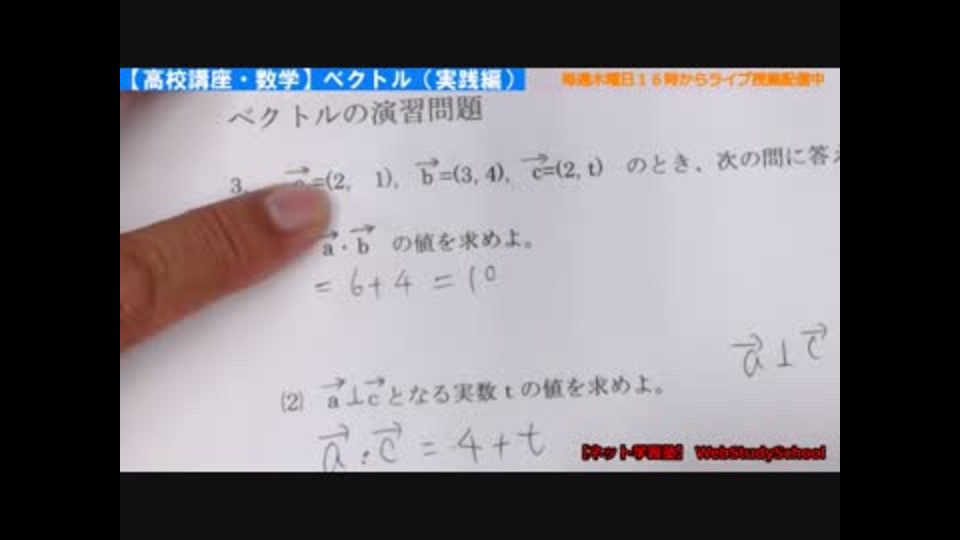 【高校講座・数学】ベクトル（実践編）
毎週木曜日１６時からライブ授業配信中
ベクトルの演習問題
3. a⃗=(2, 1), b⃗=(3, 4), c⃗=(2, t) のとき、次の問に答え
a⃗・b⃗ の値を求めよ。
= 6+4 = 10
a⃗⊥c⃗
(2) a⃗⊥c⃗となる実数tの値を求めよ。
a⃗・c⃗ = 4+t
【ネット学習塾】 WebStudySchool